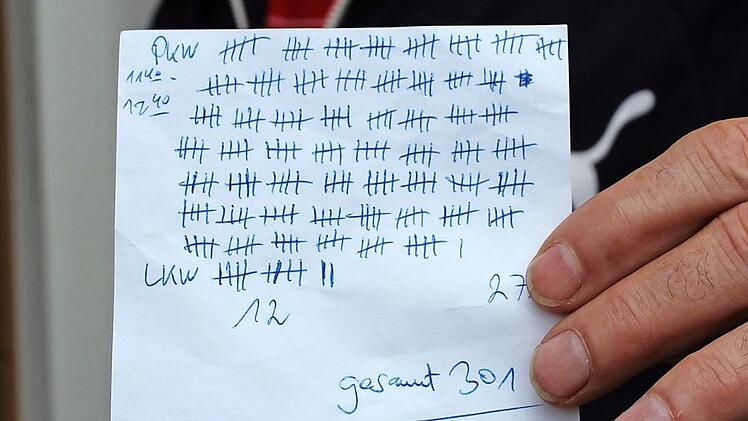 PKW
11 40 -
12 40
LKW
27
12
gesamt 301